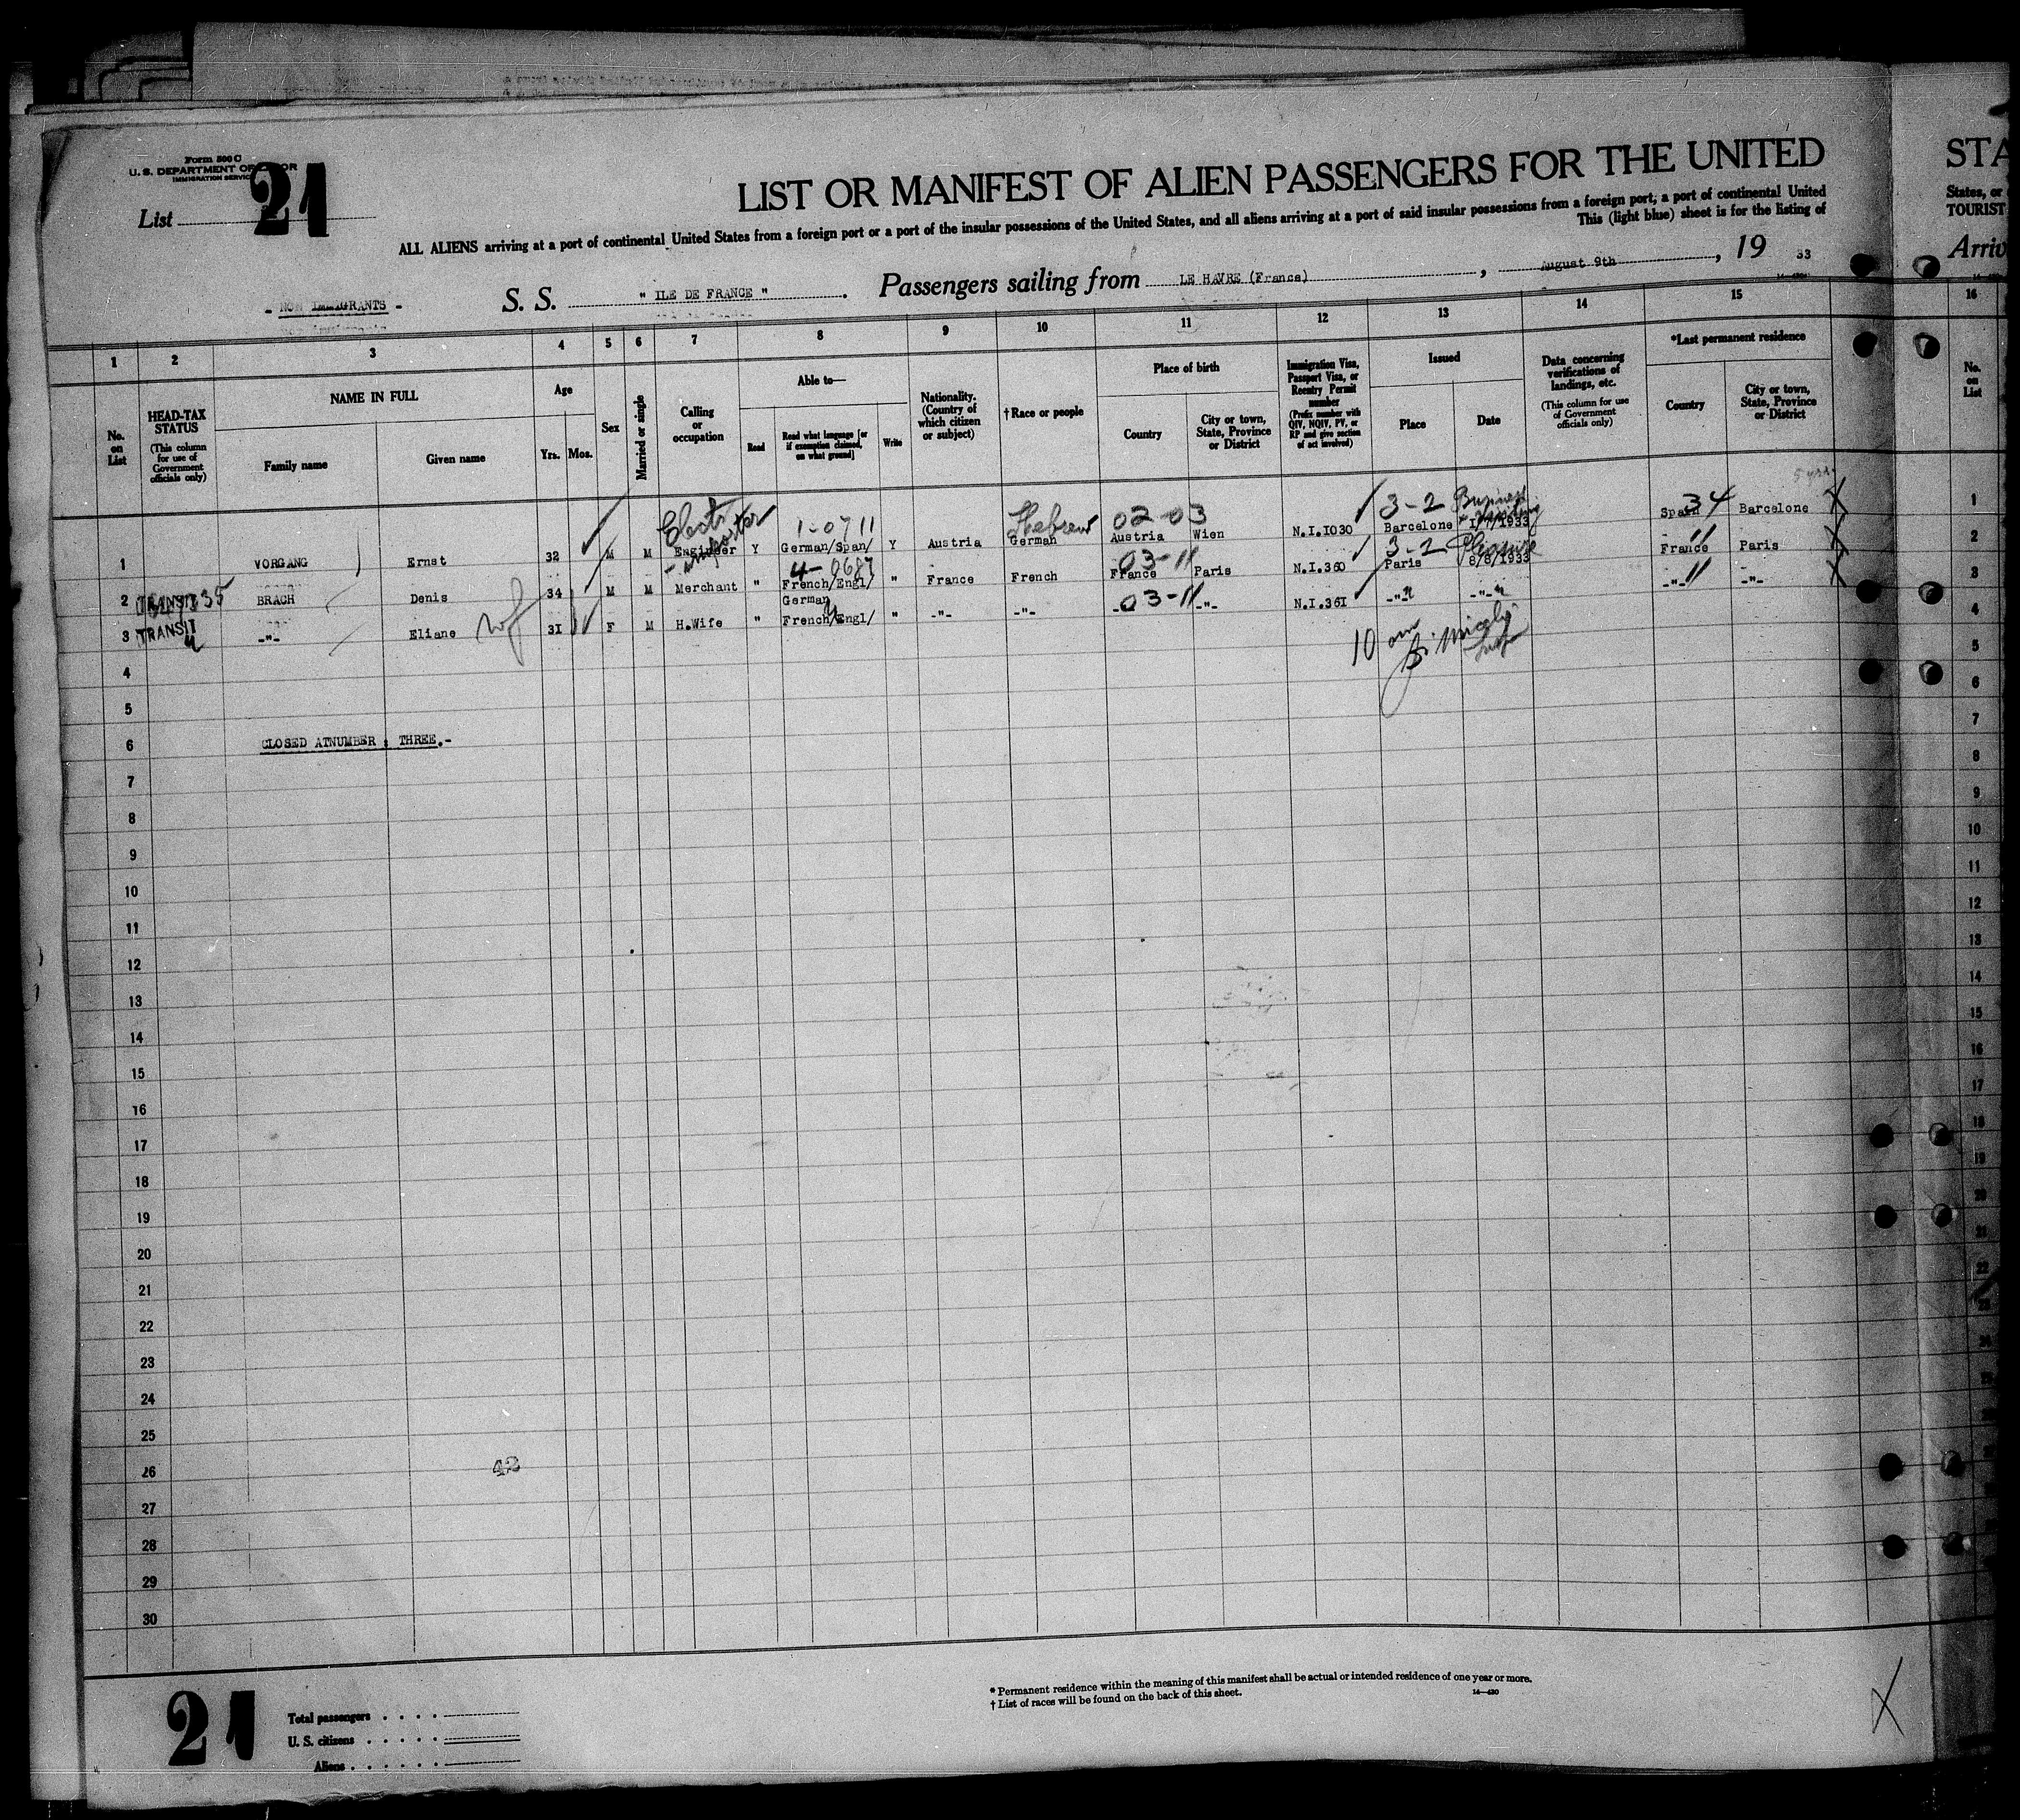 Form 500 C
U. S. DEPARTMENT OF LABOR
IMMIGRATION SERVICE
List 21
STA
LIST OR MANIFEST OF ALIEN PASSENGERS FOR THE UNITED
ALL ALIENS arriving at a port of continental United States from a foreign port or a port of the insular possessions of the United States, and all aliens arriving at a port of said insular possessions from a foreign port, a port of continental United
States, or
This (light blue) sheet is for the listing of
TOURIST
- NON IMMIGRANTS -
S. S. " ILE DE FRANCE " . Passengers sailing from LE HAVRE (France) , August 9th , 19 33
Arriv
1 2 3 4 5 6 7 8 9 10 11 12 13 14 15 16
No. on List
HEAD-TAX STATUS
(This column for use of Government officials only)
NAME IN FULL
Family name
Given name
Age
Yrs. Mos.
Sex
Married or single
Calling or occupation
Able to—
Read
Read what language [or if exemption claimed, on what ground]
Write
Nationality. (Country of which citizen or subject)
† Race or people
Place of birth
Country
City or town, State, Province or District
Immigration Visa, Passport Visa, or Reentry Permit number
(Prefix number with QIV, NQIV, PV, or RP and give section of act involved)
Issued
Place
Date
Data concerning verifications of landings, etc.
(This column for use of Government officials only)
*Last permanent residence
Country
City or town, State, Province or District
No. on List
Electr 1-0711 Hebrew 02-03 3-2 Business 34 5 yrs.
1 VORGANG Ernst 32 M M Engineer Y German/Span/ Y Austria German Austria Wien N.I.1030 Barcelone 1/7/1933 Spain Barcelone
- importer 4-0687 03-11 3-2 Pleasure 11
2 TRANSIT 35 BRACH Denis 34 M M Merchant " French/Engl/ " France French France Paris N.I.360 Paris 8/8/1933 France Paris
German 03-11 11
3 TRANSIT -"- Eliane wf 31 F M H.Wife " French/Engl/ " -"- -"- -"- -"- N.I.361 -"- -"- -"- -"-
10 am
4
5
6 CLOSED ATNUMBER : THREE.-
7
8
9
10
11
12
13
14
15
16
17
18
19
20
21
22
23
24
25
26 42
27
28
29
30
1
2
3
4
5
6
7
8
9
10
11
12
13
14
15
16
17
18
19
20
21
22
23
* Permanent residence within the meaning of this manifest shall be actual or intended residence of one year or more.
† List of races will be found on the back of this sheet.
14—430
21
Total passengers . . . .
U. S. citizens . . . . .
Aliens . . . . . .
X